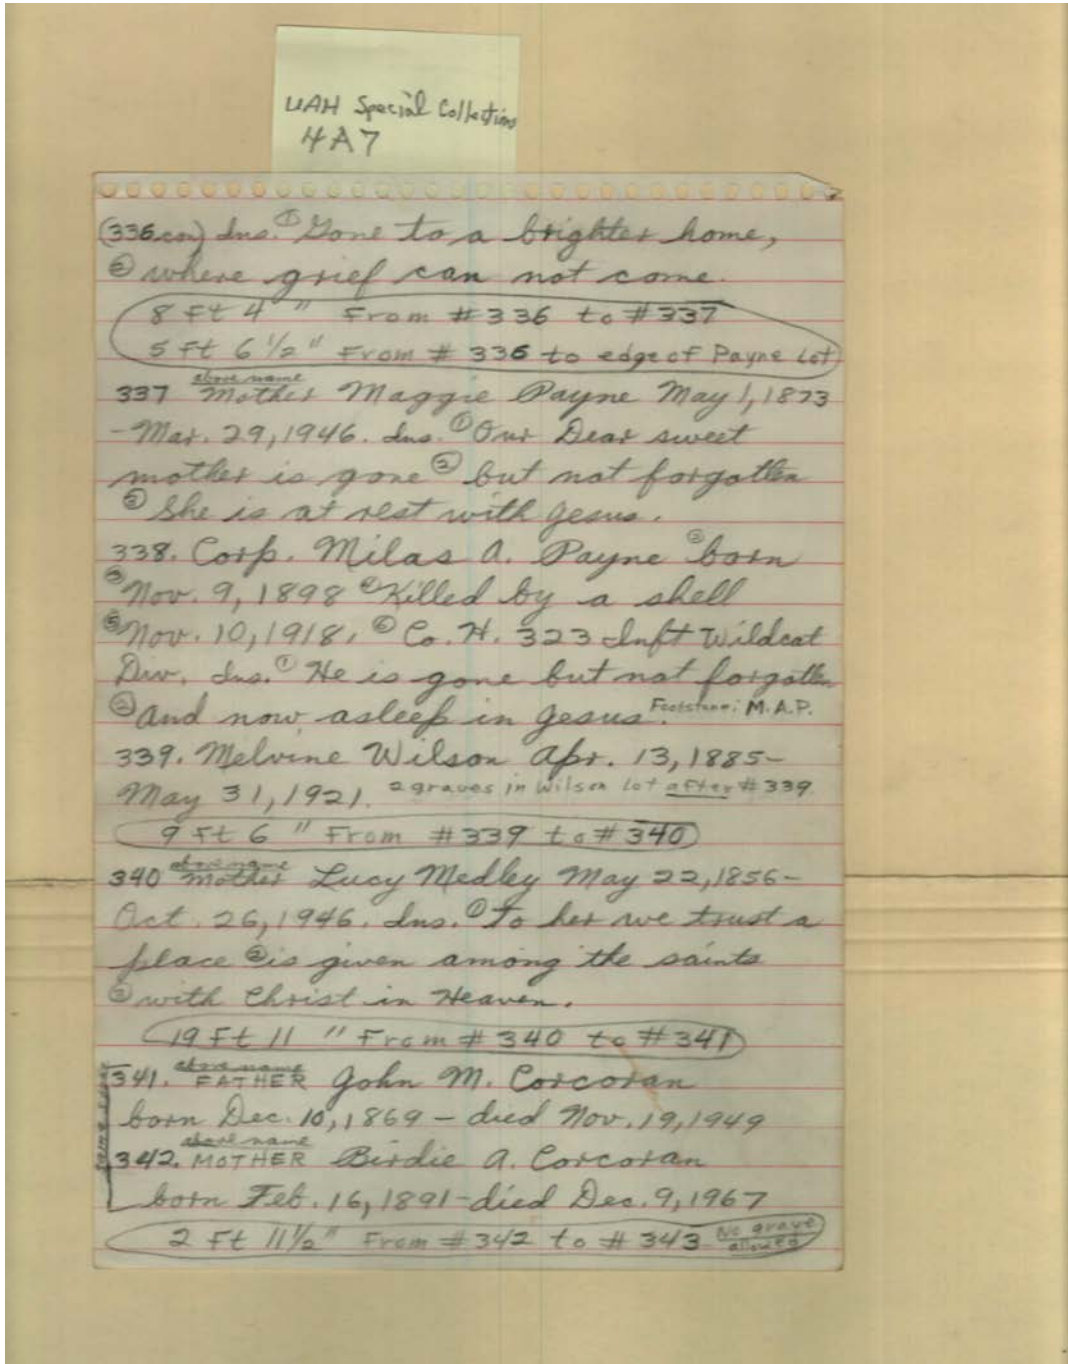 UAH Special Collections
4A7
(336 con) Ins. ① Gone to a brighter home,
② where grief can not come.
8 Ft 4 " From # 336 to # 337
5 Ft 6 1/2" From # 336 to edge of Payne Lot
above name
337 Mother Maggie Payne May 1, 1873
- Mar. 29, 1946. Ins. ① Our Dear sweet
mother is gone ② but not forgotten
③ She is at rest with Jesus.
338. Corp. Milas A. Payne ② born
③ Nov. 9, 1898 ④ Killed by a shell
⑤ Nov. 10, 1918. ⑥ Co. H. 323 Inft Wildcat
Div. Ins. ① He is gone but not forgotten
② And now asleep in Jesus. Footstone: M.A.P.
339. Melvine Wilson Apr. 13, 1885-
May 31, 1921. 2 graves in Wilson lot after # 339
9 Ft 6 " From # 339 to # 340
above name
340 Mother Lucy Medley May 22, 1856-
Oct. 26, 1946. Ins. ① To her we trust a
place ② is given among the saints
③ with Christ in Heaven.
19 Ft 11 " From # 340 to # 341
above name
341. FATHER John M. Corcoran
born Dec. 10, 1869 - died Nov. 19, 1949
above name
342. MOTHER Birdie A. Corcoran
born Feb. 16, 1891 - died Dec. 9, 1967
2 Ft 11 1/2" From # 342 to # 343 No grave
allowed